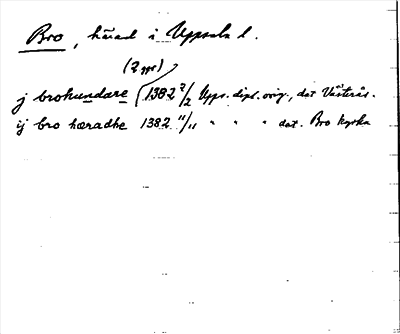 Bro, härad i Uppsala l.
(2 ggr)
j brohundare (1382 2/2 Upps. dipl. orig., dat Västerås.
ij bro hæradhe 1382 11/11 " " " dat. Bro kyrka